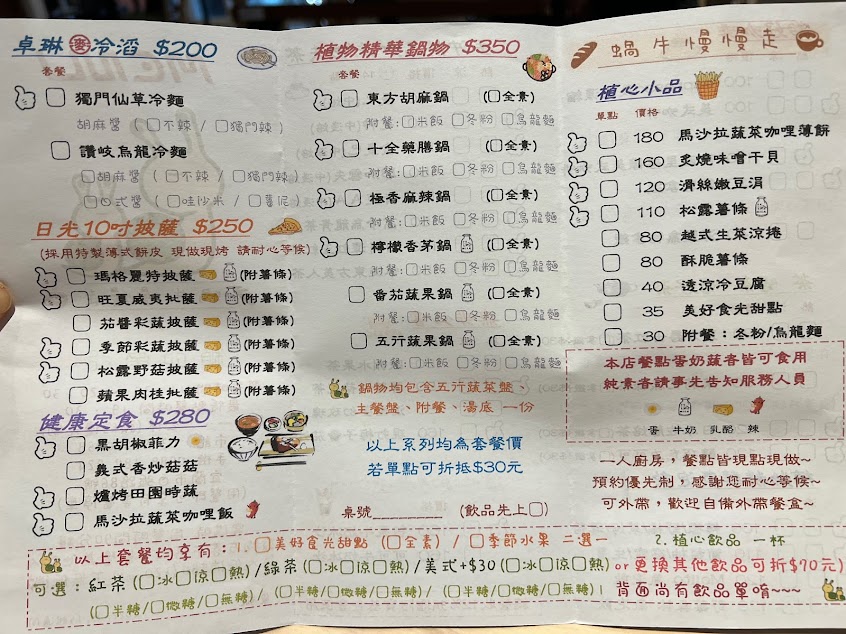 卓琳麥冷滔 $200
套餐
□ 獨門仙草冷麵
胡麻醬 (□不辣 / □獨門辣)
□ 讚岐烏龍冷麵
□胡麻醬 (□不辣 / □獨門辣)
□日式醬 (□哇沙米 / □薑泥)
日光10吋披薩 $250
(採用特製薄式餅皮 現做現烤 請耐心等候)
□ 瑪格麗特披薩 (附薯條)
□ 旺夏威夷披薩 (附薯條)
□ 茄醬彩蔬披薩 (附薯條)
□ 季節彩蔬披薩 (附薯條)
□ 松露野菇披薩 (附薯條)
□ 蘋果肉桂披薩 (附薯條)
健康定食 $280
□ 黑胡椒菲力
□ 義式香炒菇菇
□ 爐烤田園時蔬
□ 馬沙拉蔬菜咖哩飯
植物精華鍋物 $350
套餐
□ 東方胡麻鍋 (□全素)
附餐:□米飯 □冬粉 □烏龍麵
□ 十全藥膳鍋 (□全素)
附餐:□米飯 □冬粉 □烏龍麵
□ 極香麻辣鍋 (□全素)
附餐:□米飯 □冬粉 □烏龍麵
□ 檸檬香茅鍋 (□全素)
附餐:□米飯 □冬粉 □烏龍麵
□ 番茄蔬果鍋 (□全素)
附餐:□米飯 □冬粉 □烏龍麵
□ 五行蔬果鍋 (□全素)
附餐:□米飯 □冬粉 □烏龍麵
鍋物均包含五行蔬菜盤、
主餐盤、附餐、湯底 一份
以上系列均為套餐價
若單點可折抵$30元
桌號________ (飲品先上□)
蝸牛慢慢走
植心小品
單點 價格
□ 180 馬沙拉蔬菜咖哩薄餅
□ 160 炙燒味噌干貝
□ 120 滑絲嫩豆涓
□ 110 松露薯條
□ 80 越式生菜涼捲
□ 80 酥脆薯條
□ 40 透涼冷豆腐
□ 35 美好食光甜點
□ 30 附餐:冬粉/烏龍麵
本店餐點蛋奶蔬者皆可食用
純素者請事先告知服務人員
蛋 牛奶 乳酪 辣
一人廚房,餐點皆現點現做~
預約優先制,感謝您耐心等候~
可外帶,歡迎自備外帶餐盒~
以上套餐均享有:1.□美好食光甜點 (□全素) / □季節水果 二選一 2.植心飲品 一杯
可選:紅茶(□冰□涼□熱)/綠茶(□冰□涼□熱)/美式+$30(□冰□涼□熱) or更換其他飲品可折$70元)
(□半糖/□微糖/□無糖)/ (□半糖/□微糖/□無糖)/ (□半糖/□微糖/□無糖) 背面尚有飲品單唷~~~